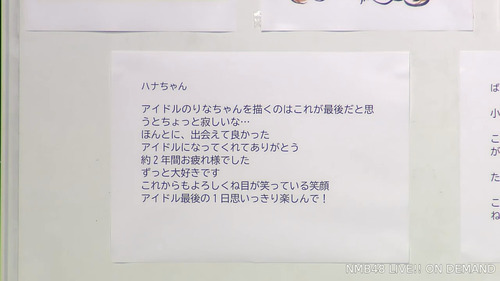 ハナちゃん
アイドルのりなちゃんを描くのはこれが最後だと思
うとちょっと寂しいな…
ほんとに、出会えて良かった
アイドルになってくれてありがとう
約２年間お疲れ様でした
ずっと大好きです
これからもよろしくね目が笑っている笑顔
アイドル最後の１日思いっきり楽しんで！
ば
小
こ
が
た
こ
ね
NMB48 LIVE!! ON DEMAND